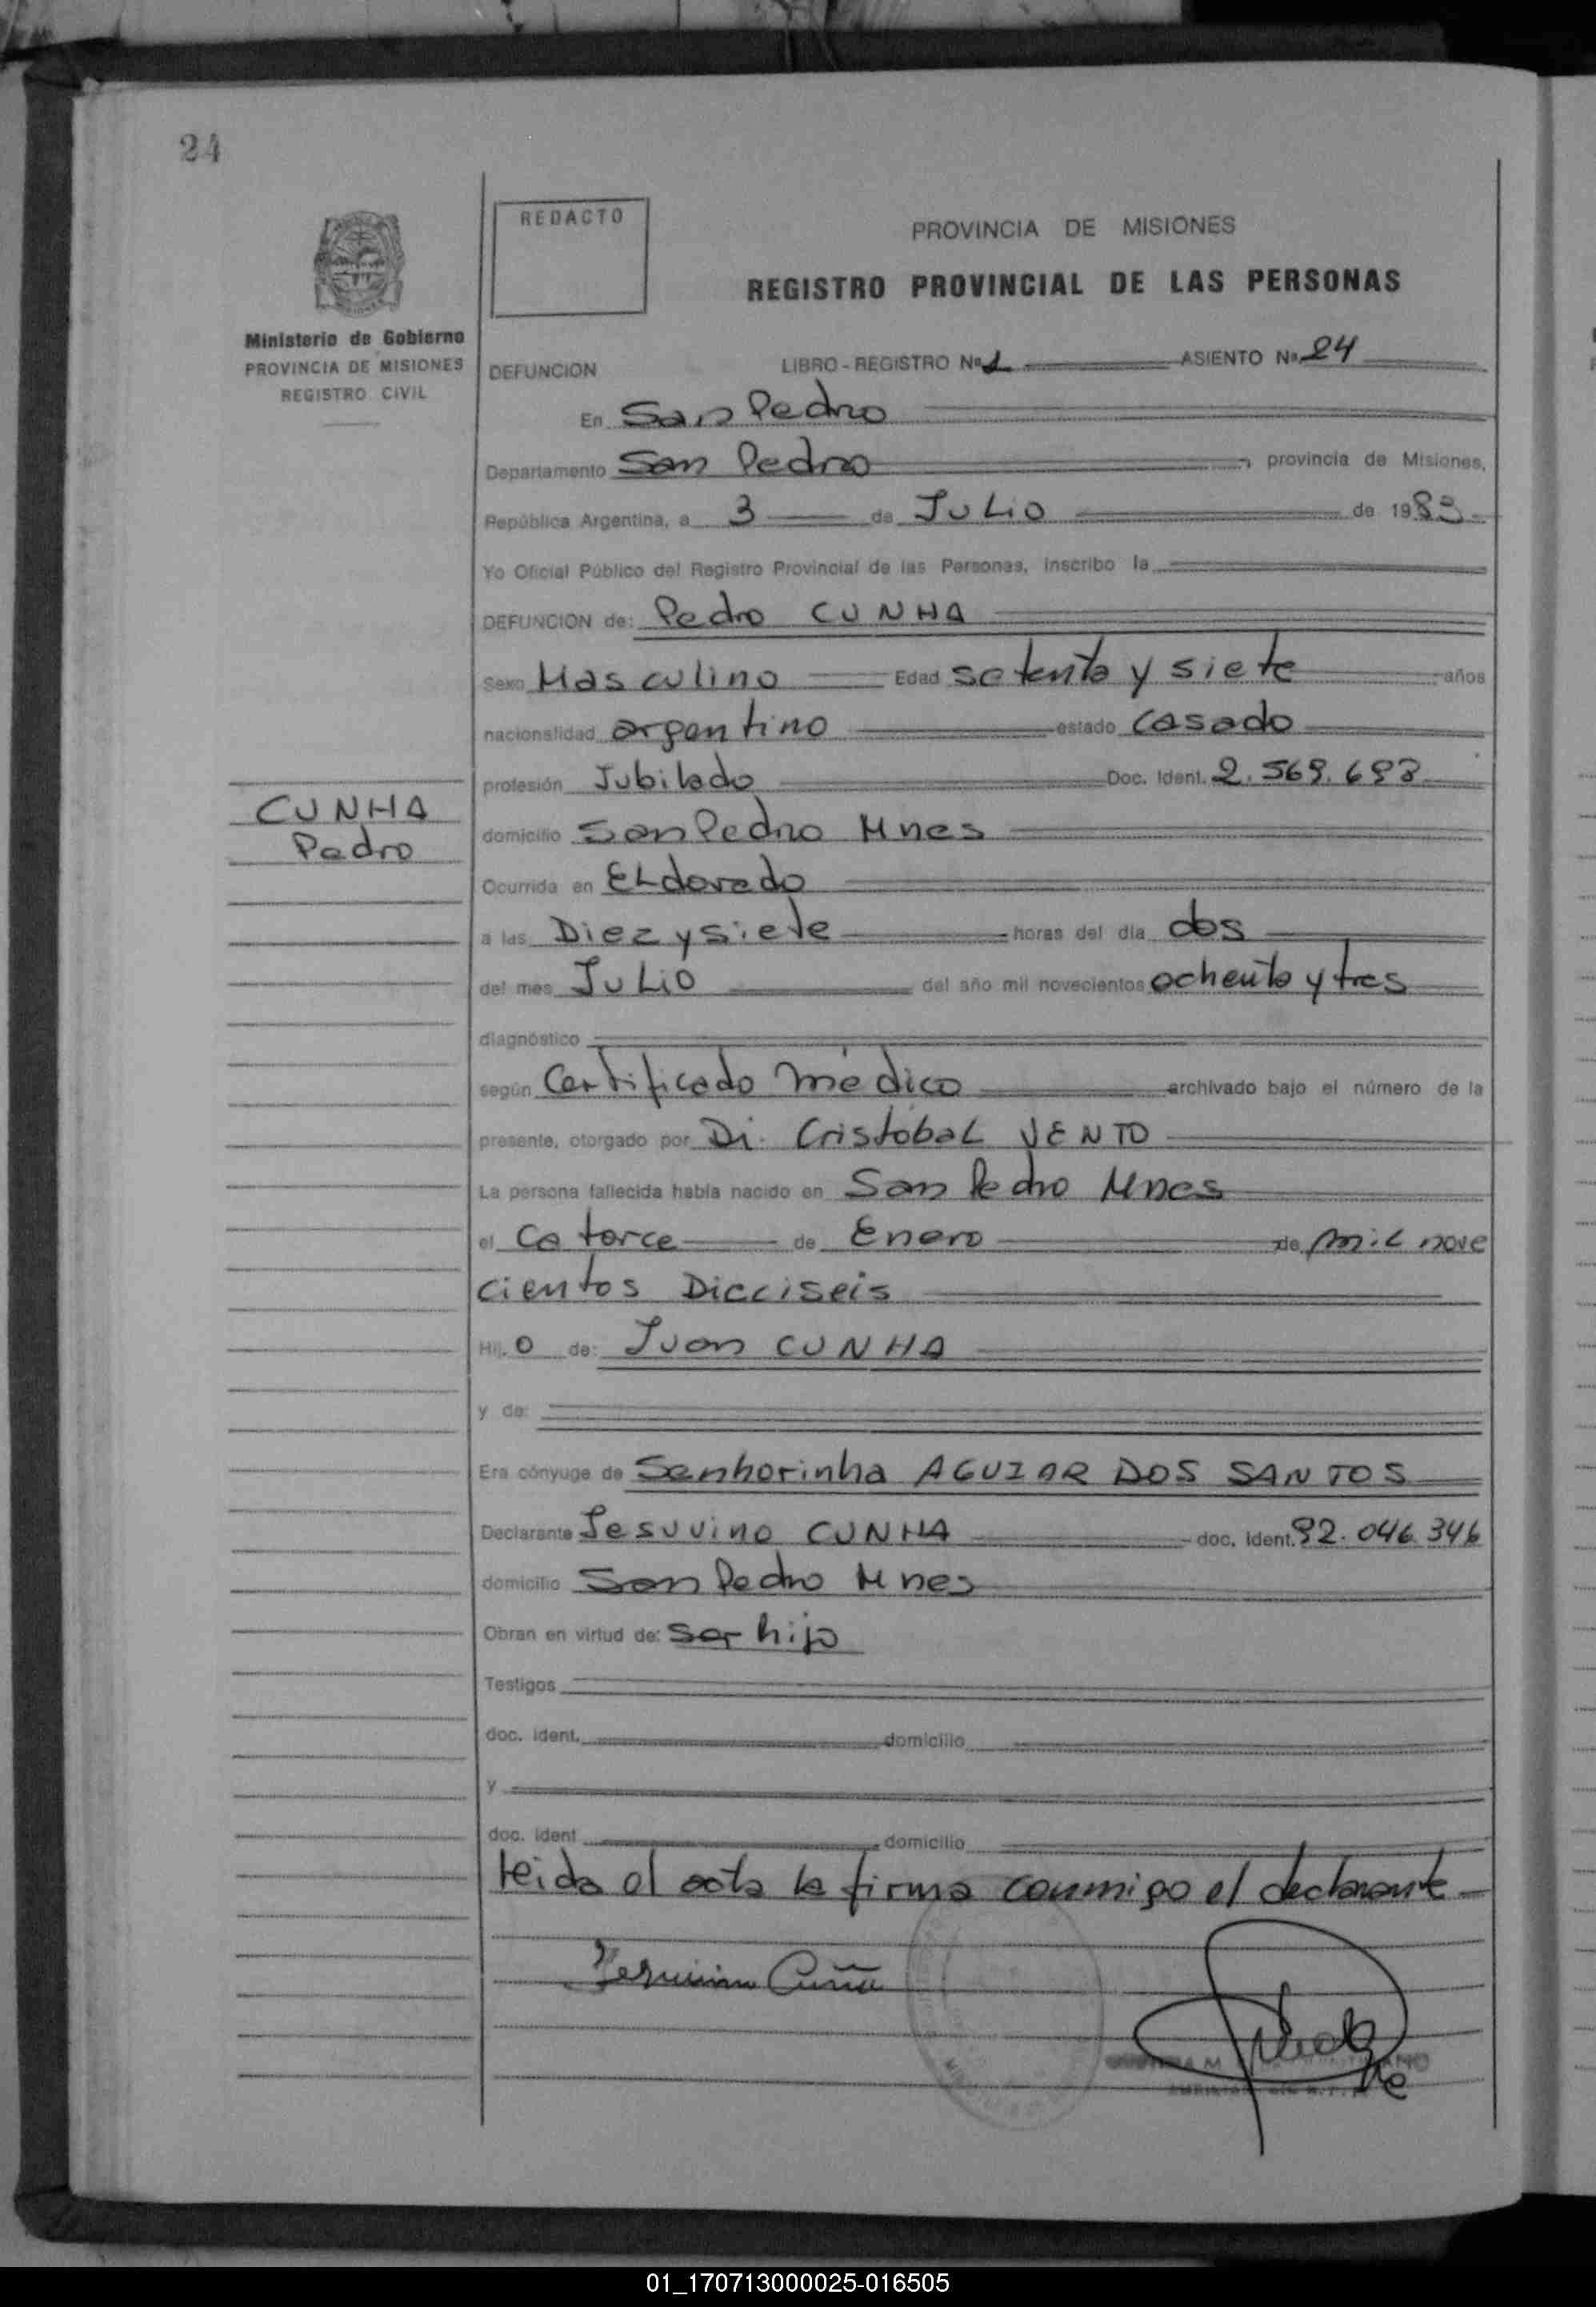 24
REDACTO
PROVINCIA DE MISIONES
REGISTRO PROVINCIAL DE LAS PERSONAS
Ministerio de Gobierno
PROVINCIA DE MISIONES
REGISTRO CIVIL
DEFUNCION LIBRO - REGISTRO Nº 1 ASIENTO Nº 24
En San Pedro
Departamento San Pedro, provincia de Misiones,
República Argentina, a 3 de Julio de 1983
Yo Oficial Público del Registro Provincial de las Personas, inscribo la
DEFUNCION de: Pedro CUNHA
Sexo Masculino Edad setenta y siete años
nacionalidad argentino estado casado
profesión Jubilado Doc. Ident. 2.569.693
CUNHA
Pedro
domicilio San Pedro Mnes
Ocurrida en ELdorado
a las Diez y siete horas del día dos
del mes Julio del año mil novecientos ochenta y tres
diagnóstico
según Certificado médico archivado bajo el número de la
presente, otorgado por Dr. Cristobal VENTO
La persona fallecida había nacido en San Pedro Mnes
el Catorce de Enero de mil nove
cientos Dieciseis
Hijo de: Juan CUNHA
y de:
Era cónyuge de Senhorinha AGUIAR DOS SANTOS
Declarante Jesuvino CUNHA doc. Ident. 92.046.346
domicilio San Pedro Mnes
Obran en virtud de: ser hijo
Testigos
doc. ident. domicilio
y
doc. ident domicilio
leida el acta la firma conmigo el declarante
Jesuvino Cuña
01_170713000025-016505